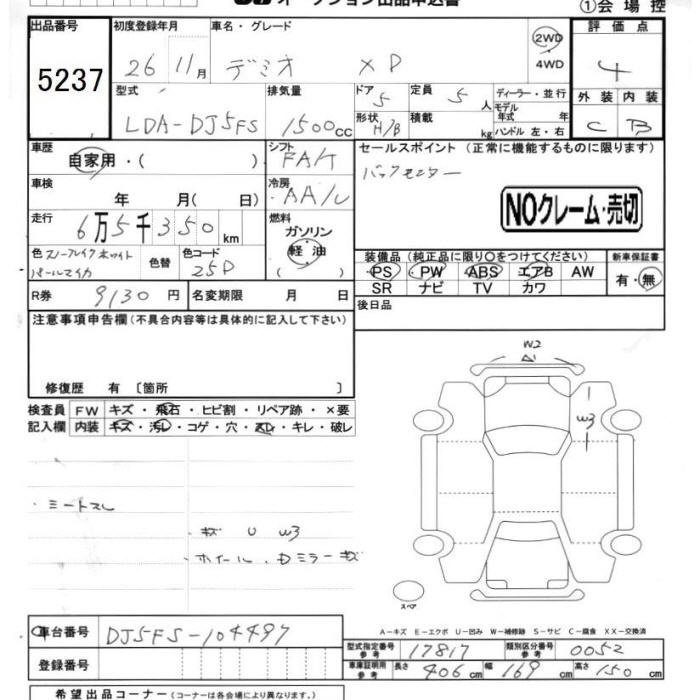 オークション出品申込書
①会場控
出品番号 初度登録年月 車名・グレード 評価点
5237 26 11月 デミオ XD 2WD 4WD 4
型式 排気量 ドア 5 定員 5人 ディーラー・並行 外装 内装
LDA-DJ5FS 1500cc 形状 H/B 積載 kg モデル年式 年 ハンドル 左・右 C B
車歴 シフト セールスポイント (正常に機能するものに限ります)
自家用・( ) FA/T
車検 冷房 バックセンター
年 月( 日) AA/C NOクレーム・売切
走行 燃料
6万5千350km ガソリン 軽油 ( )
装備品 (純正品に限り○をつけてください) 新車保証書
色 スノーフレイクホワイトパールマイカ 色替 色コード 25D
PS・PW・ABS・エアB AW 有・無
SR ナビ TV カワ
R券 9130円 名変期限 月 日
後日品
注意事項申告欄 (不具合内容等は具体的に記入して下さい)
修復歴 有 [箇所 ]
検査員記入欄 FW キズ・飛石・ヒビ割・リペア跡・×要
内装 キズ・汚レ・コゲ・穴・スレ・キレ・破レ
W2
W3
スペア
・キズ U W3
A-キズ E-エクボ U-凹み W-補修跡 S-サビ C-腐食 XX-交換済
車台番号 DJ5FS-104497
型式指定番号 参考 17817 類別区分番号 参考 0052
登録番号
車庫証明用 参考 長さ 406cm 幅 169cm 高さ 150cm
希望出品コーナー (コーナーは各会場により異なります。)